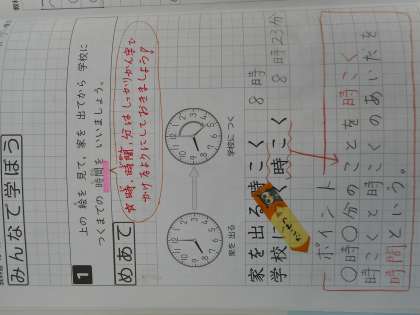 みんなで学ぼう
1 上の絵を見て、家を出てから学校に
つくまでの時間をいいましょう。
時、時間、分はしっかりかん字で
かけるようにしておきましょう!
めあて
家を出る
学校につく
家を出る時こく 8時
学校 く時こく 8時23分
ポイント
〇時〇分のことを時こく
時こくと時こくのあいだを
時間という。